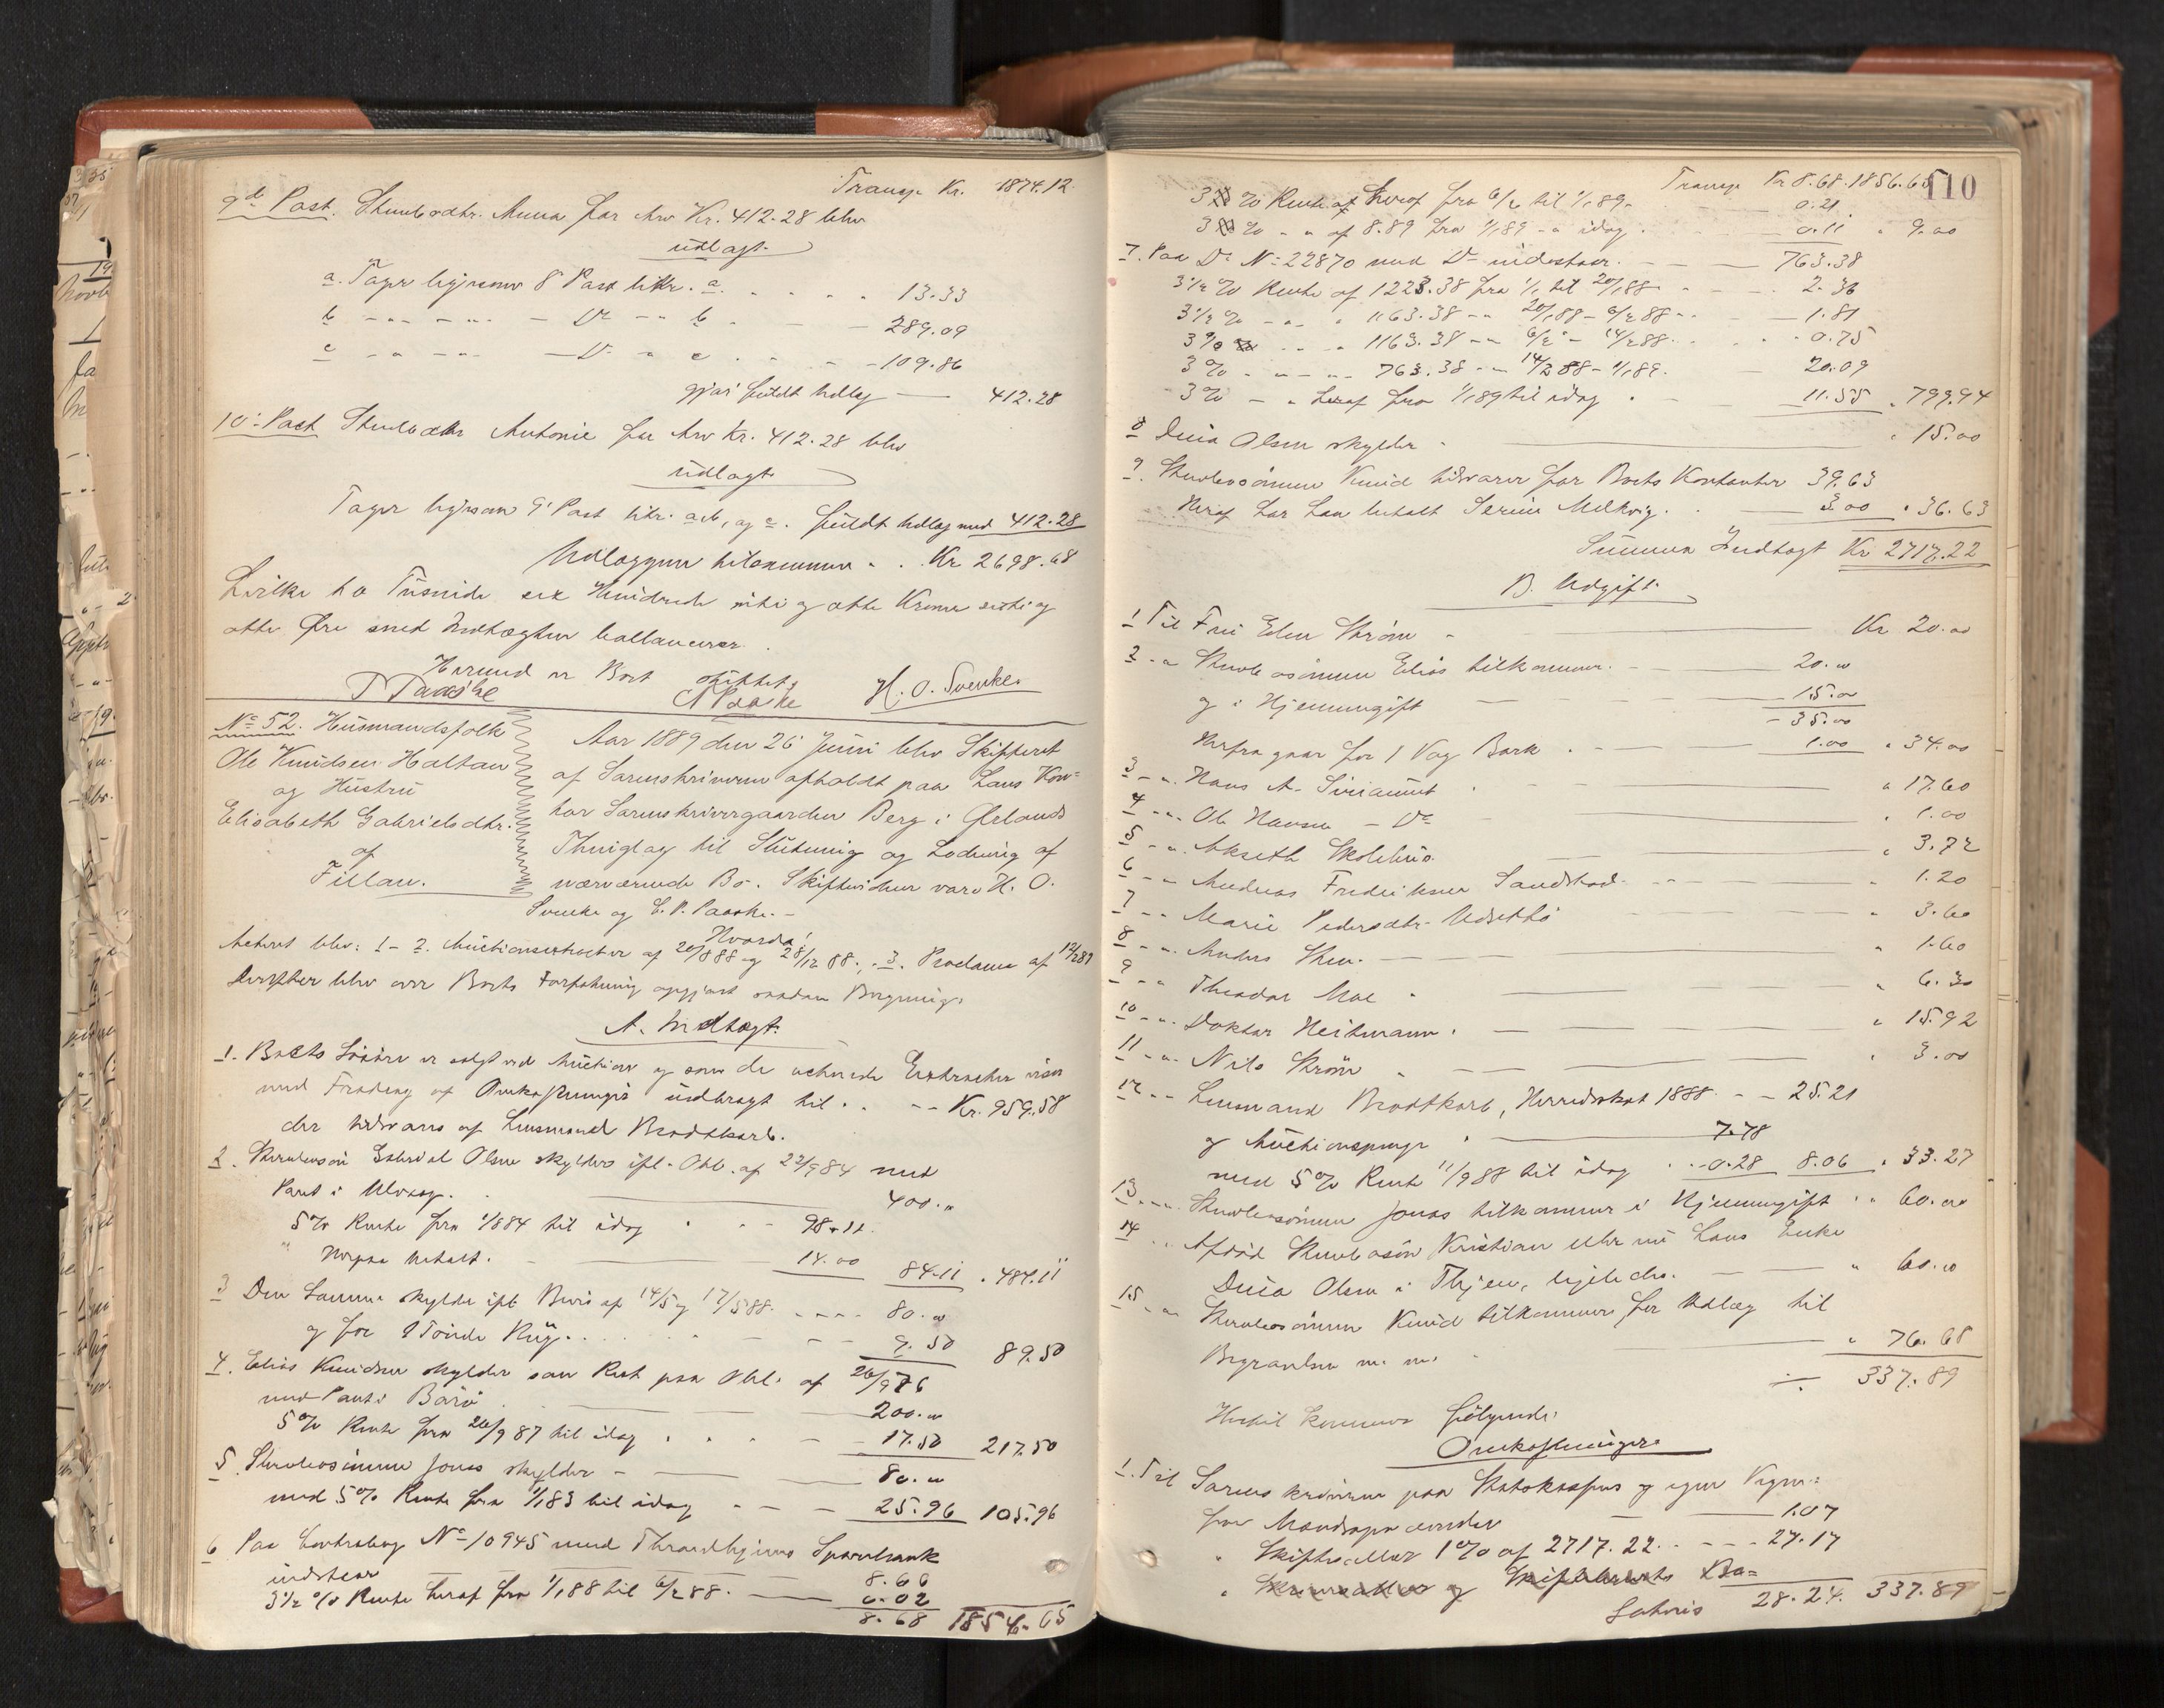 Transp. Kr. 1874.12
9de Post. Stervbodtr. Anna for Arv Kr. 412.28 blev
udlagt
a. Tager lignende 8 Post litr. a. 13.33
b - - - Do - b - 289.09
c - - - D. - c - 109.86
gjør fuldt Udlæg — 412.28
10. Post Stervbodtr Antonie for Arv Kr. 412.28 blev
udlagt
Tager ligesom 9' Post litr. a, b, og c. fuldt Udlæg med 412.28
Udlæggene tilsammen . . Kr. 2698.68
hvilke to Tusinde sex Hundrede nitti og otte Kroner sexti og
otte Øre med Indtægten ballancerer.
Hermed er Boet sluttet.
Paaske H. O. Svenke
No 52. Husmandsfolk
Ole Knudsen Haltan
og Hustru
Elisabeth Gabrielsdtr.
af
Fillan.
Aar 1889 den 26 Juni blev Skifteret
af Sorenskriveren afholdt paa hans Kon=
tor Sorenskrivergaarden Berg i Ørlands
Thinglag til Slutning og Lodning af
nærværende Bo. Skiftevidner vare H. O.
Svenke og C. P. Paaske. -
Hvorda!
Acteret blev: 1-2. Auctionsextracter af 20/8 88 og 28/12 88., 3. Proclama af 12/2 89
Derefter blev over Boets Forfatning opgjort saadan Beregning:
A. Indtægt.
1. Boets Løsøre er solgt ved Auction og som de acterede Extracter viser
med Fradrag af Omkostninger udbragt til . . - - Kr. 959.58
der tilsvares af Lensmand Brodtkorb.
2. Stervbosøn Gabriel Olsen skylder ifl. Obl. af 22/9 84 med
Pant i Ulvaag. 400.„
5 % Rente fra 1/8 84 til idag . . - - 98.11.
" Herpaa betalt. 14.00 84.11 . 484.11
3 Den Samme skylder ifl. Bevis af 14/5 og 17/5 88. - - - 80.„
og for 1 Tønde Rug. . . . 9.50 89.50
4. Elias Knudsen skylder som Rest paa Obl. af 26/9 76
med Pant i Barø . 200.„
5 % Rente fra 26/9 87 til idag . . . 17.50 217.50
5. Stervbosønnen Jonas skylder - 80.„
med 5 % Rente fra 1/1 83 til idag - - - 25.96 105.96
6 Paa Contrabog No 10945 med Throndhjems Sparebank
indestaar 8.66
3½ % Rente heraf fra 1/1 88 til 6/2 88. 0.02
8.68 1856.65
110
Transp Kr 8.68. 1856.65
3 % Rente af heraf fra 6/2 til 1/1 89. 0.21
3 % - - af 8.89 fra 1/1 89 - - idag. 0.11 . 9.00
7. Paa Do No 22870 med Do indestaar. - - 763.38
3½ % Rente af 1223.38 fra 1/1 til 20/1 88 - - 2.36
3½ % - - - 1163.38 - - 20/1 88 - 6/2 88 - - 1.81
3 % - - - 1163.38 - - 6/2 - 14/2 88. . . 0.75
3 % - - - 763.38 - - 14/2 88 - 1/1 89. 20.09
3 % - - heraf fra 1/1 89 til idag . 11.55 . 799.94
8 Duia Olsen skylder . . 15.00
9. Stervbosønnen Knud tilsvarer for Boets Kontanter 39.63
Heraf har han betalt Serine Melkvig. 3.00 . 36.63
Summa Indtægt Kr 2717.22
B. Udgift.
1 Til Fru Elen Strøm - Kr 20.00
2 - „ Stervbosønnen Elias tilkommer. 20.„
og i Hjemmegift 15.„
- 35.00
Herfra gaar for 1 Vog Bark . 1.00 . 34.00
3 - „ Hans A. . „ 17.60
4 - „ Ole Hansen - Do . 1.00
5 - „ Akseth Skolehus . 3.72
6 - „ Andreas Fredriksen Sandstad. . 1.20
7 - „ Marie Pedersdtr. Udsettø . 3.60
8 - „ Anders Steen. „ 1.60
9 - „ Theodor Moe . „ 6.30
10 - „ Doktor Heitmann . „ 15.92
11 - „ Nils Strøm . . 3.00
12 - - Lensmand Brodtkorb, Herredsskat 1888. - - 25.21
og Auctionspenge . 7.78
med 5 % Rente 11/9 88 til idag . . 0.28 8.06 . 33.27
13 - „ Stervbosønnen Jonas tilkommer i Hjemmegift . „ 60.00
14 - „ Afdød Stervbosøn Kristian eller nu hans Enke
Duia Olsen i Thjem, ligeledes. „ 60.„
15 - „ Stervbosønnen Knud tilkommer for Udlæg til
Begravelsen m. m. . „ 76.68
÷ 337.89
Hertil kommer følgende
Omkostninger
1. Til Sorenskriveren paa Statskassens og egne Vegne:
for 1.07
„ Skifteseddel 1 % af 2717.22 . . - - - 27.17
„ og
Lateris 28.24. 337.89